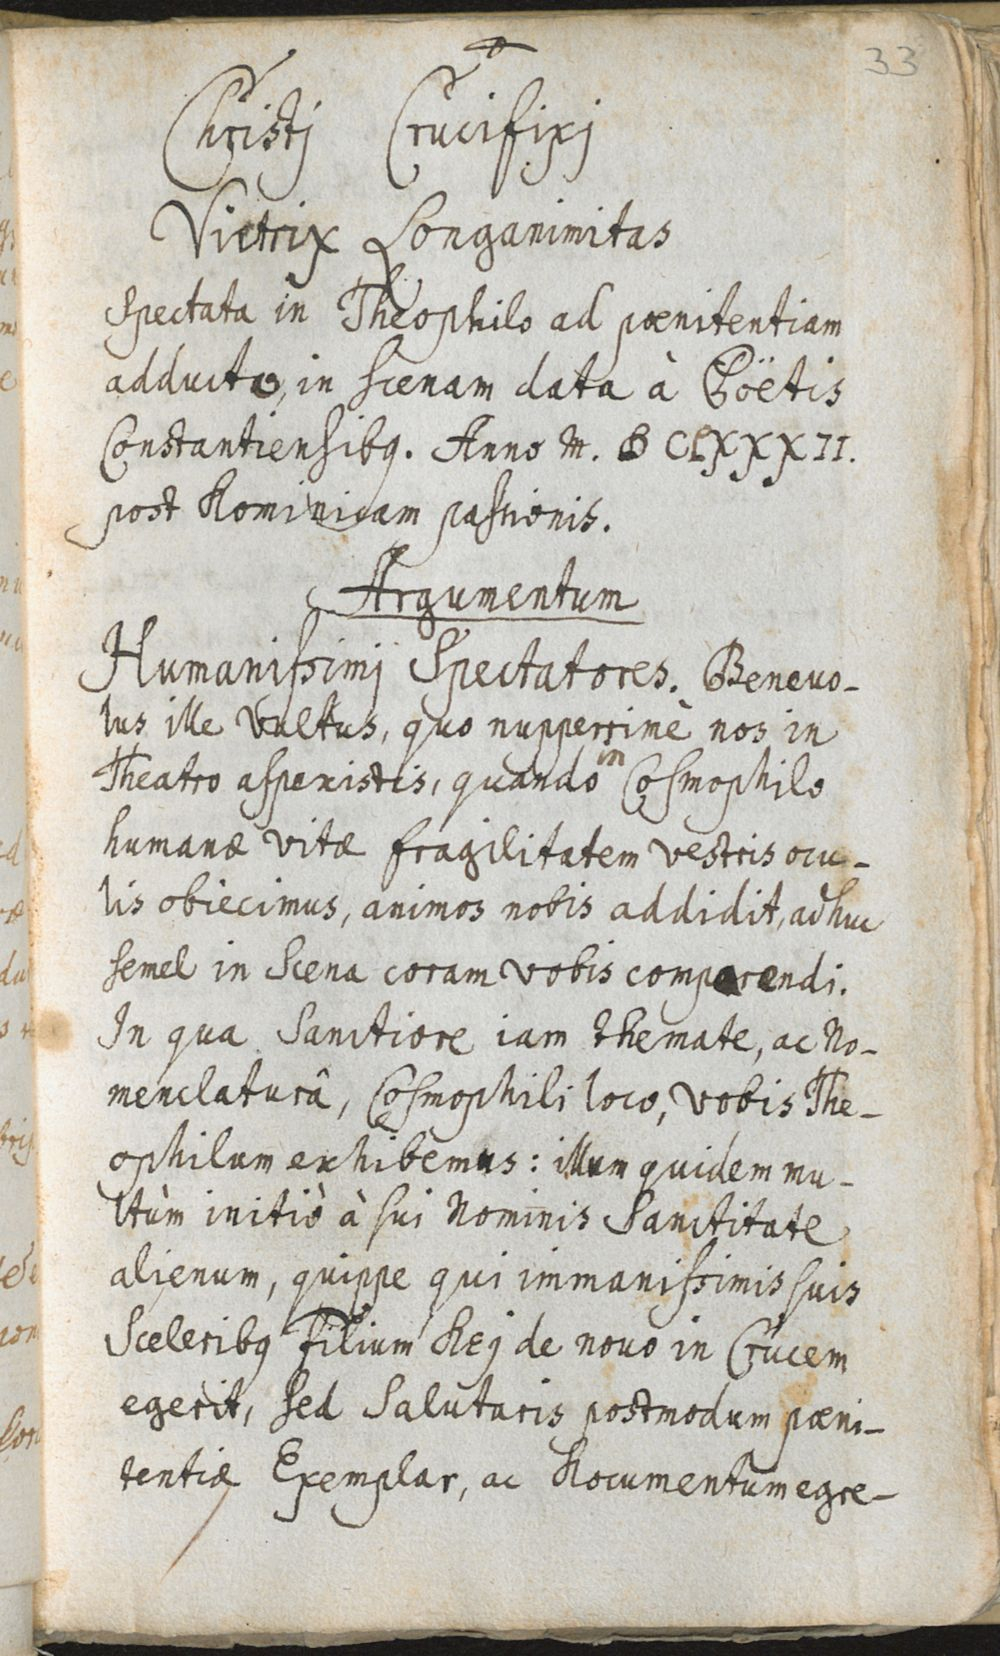 33
Christj Crucifixj
Victrix Longanimitas
Spectata in Theophilo ad pœnitentiam
adducto, in scenam data à Poëtis
Constantiensibq. Anno M. D CLXXXII.
post Dominicam passionis.
Argumentum
Humanissimj Spectatores. Beneuo-
lus ille Vultus, quo nupperrimè nos in
in
Theatro aspexistis, quando Cosmophilo
humanæ vitæ fragilitatem vestris ocu-
lis obiecimus, animos nobis addidit, adhuc
semel in Scena coram vobis comparendi.
In qua Sanctiore iam themate, ac No-
menclaturâ, Cosmophili loco, vobis The-
ophilum exhibemus: illum quidem mu-
ltùm initiò à sui Nominis Sanctitate
alienum, quippe qui immanissimis suis
Sceleribq Filium Dej de nouo in Crucem
egerit, sed Salutaris postmodum pœni-
tentiæ Exemplar, ac Documentum egre-